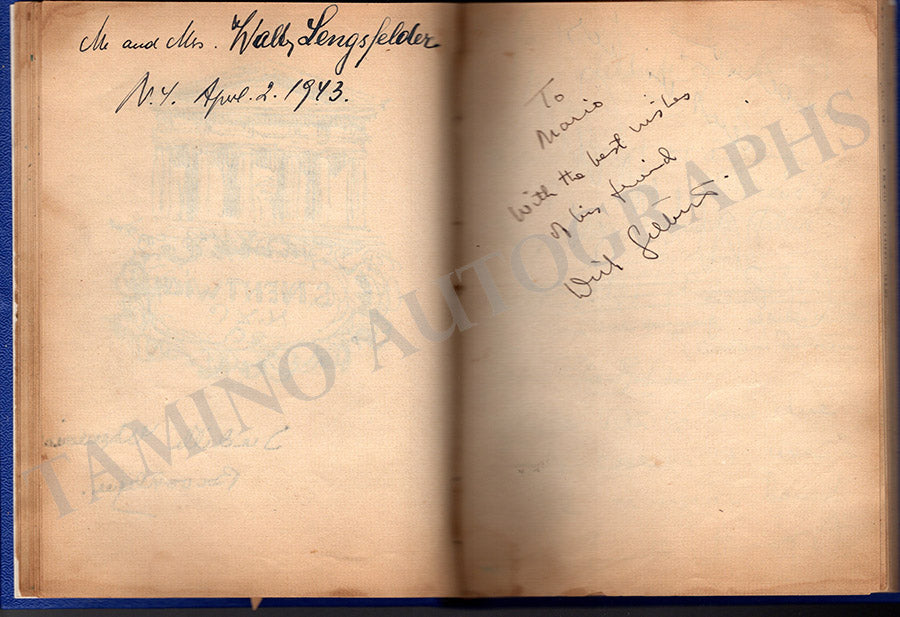 Mr and Mrs. Wally Lengsfelder
N.Y. April. 2. 1943.
To
Mario
With the best wishes
of his friend
Dick Gilbert.
TAMINO AUTOGRAPHS